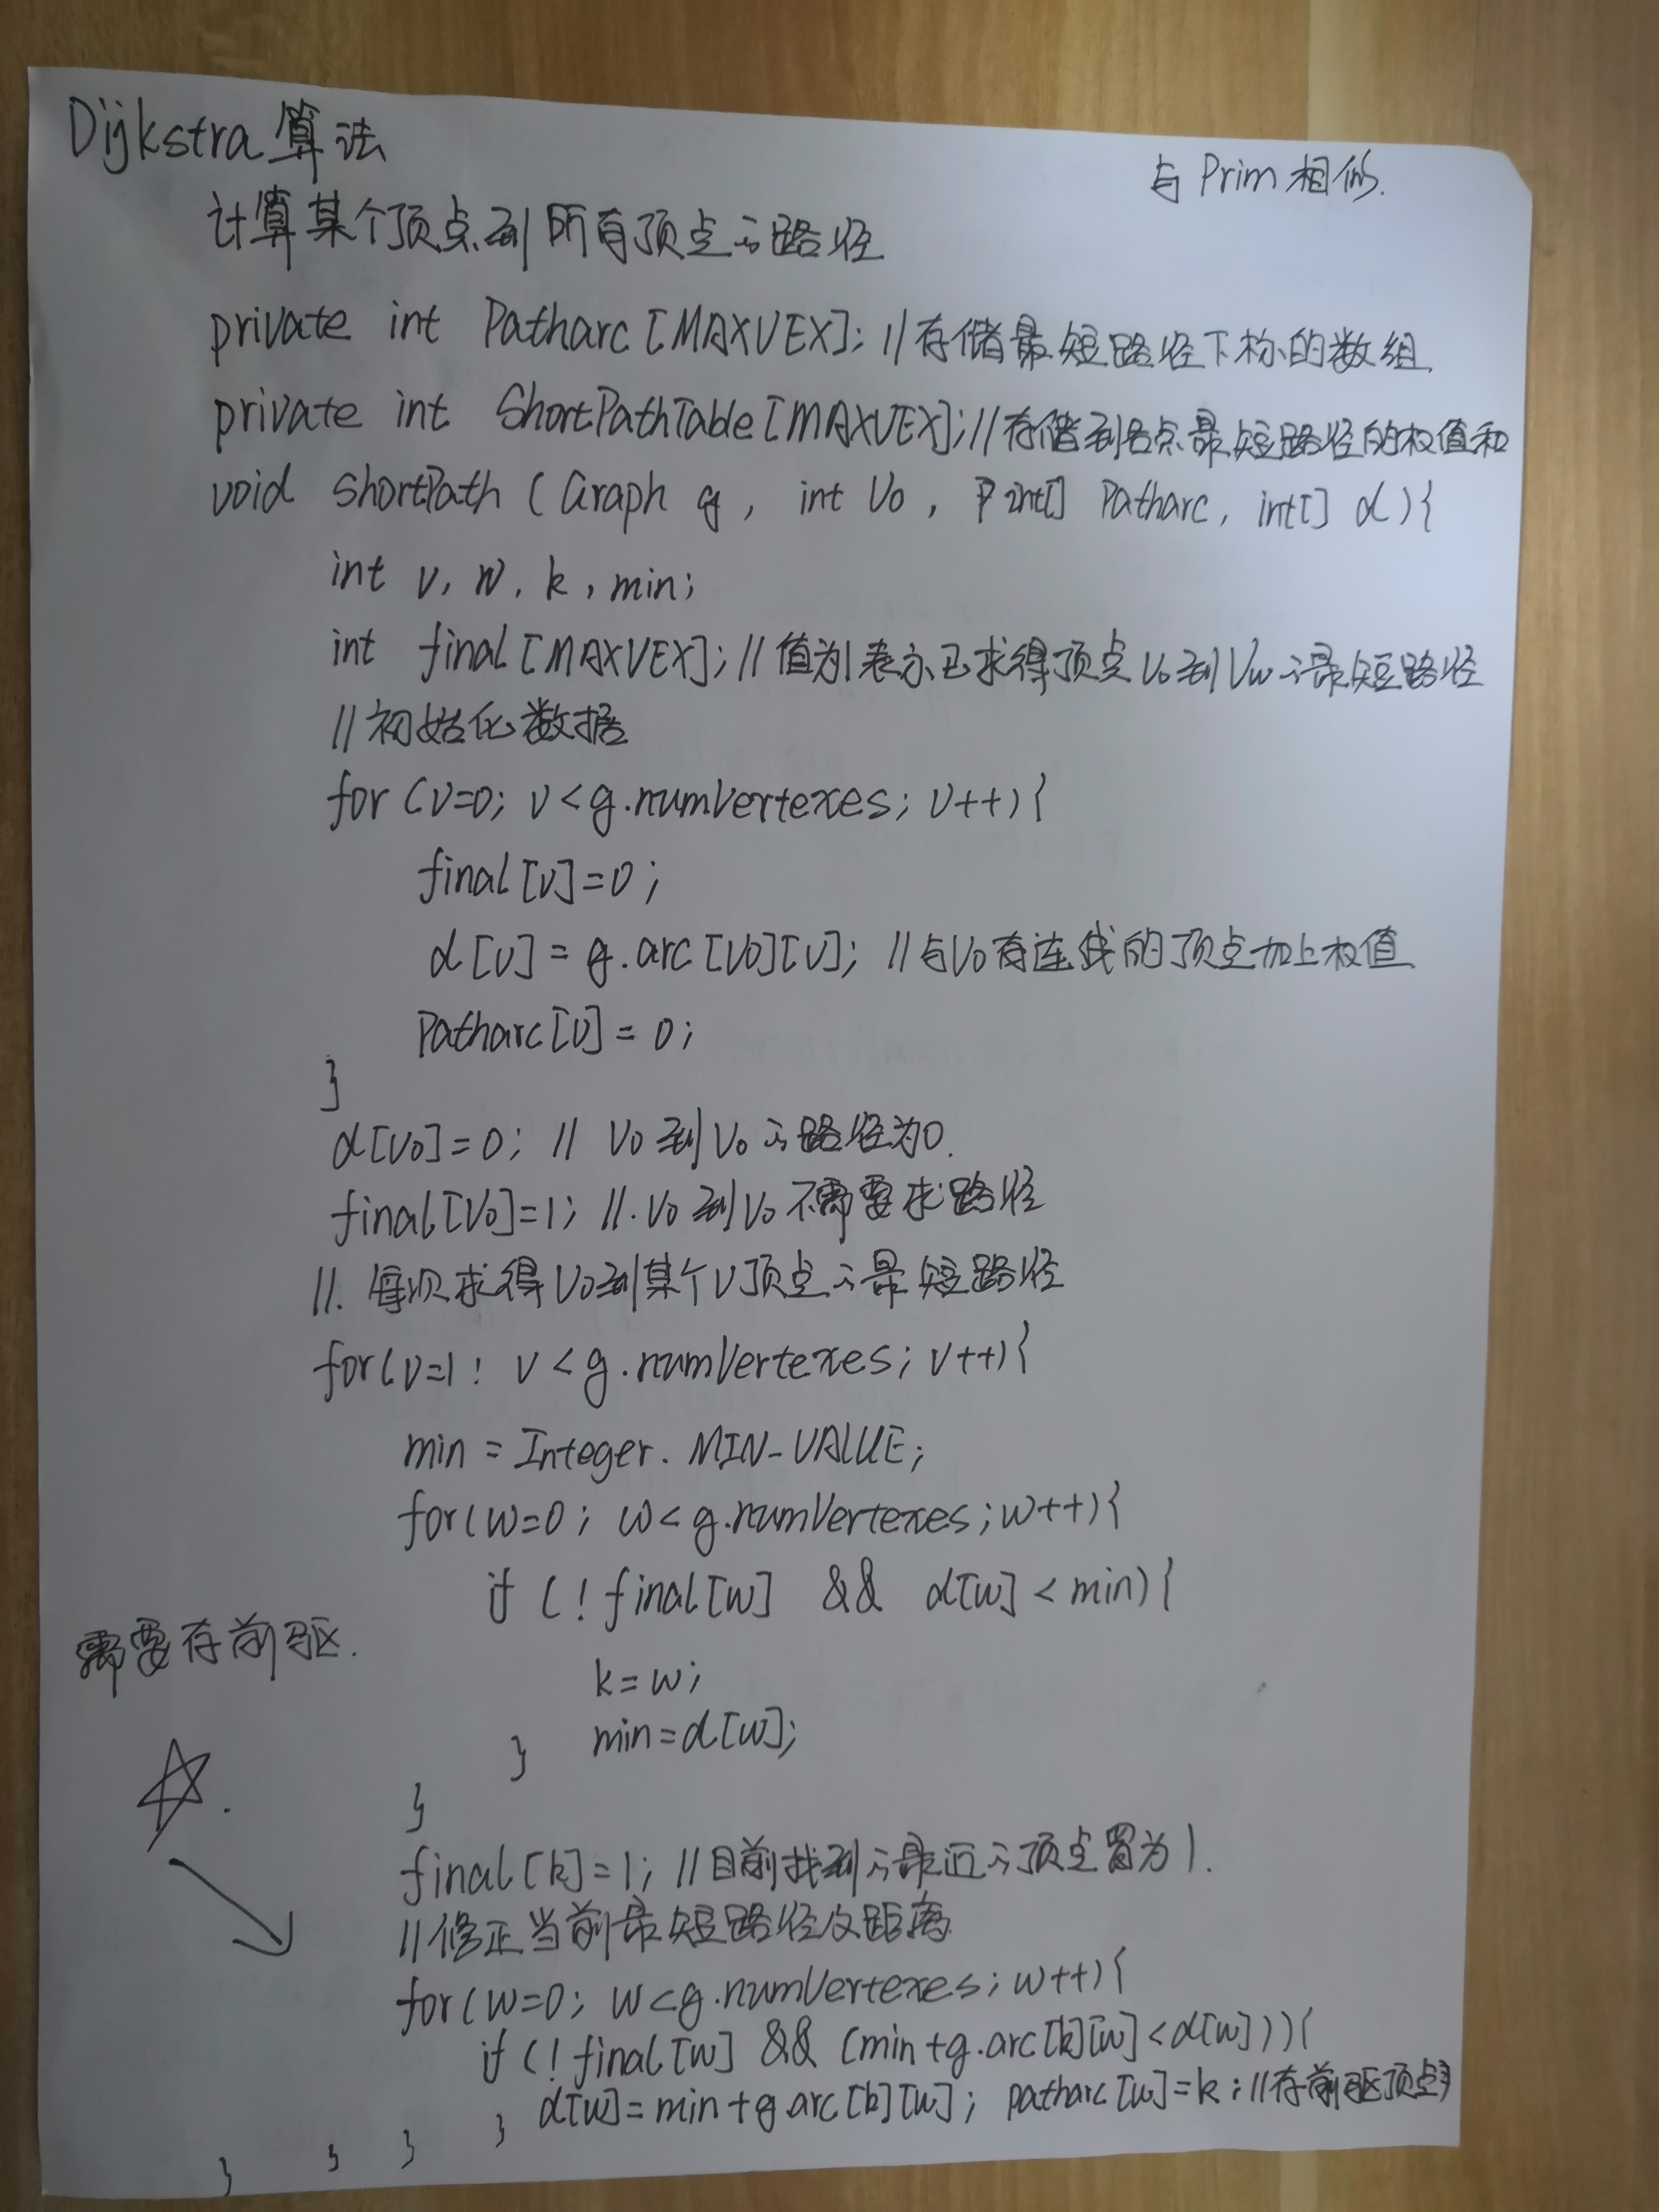 Dijkstra 算法
与 Prim 相似.
计算某个顶点到所有顶点的路径
private int Patharc [MAXVEX]; //存储最短路径下标的数组
private int ShortPathTable [MAXVEX]; //存储到各点最短路径的权值和
void ShortPath ( Graph g , int V0 , int[] Patharc, int[] d ){
int v, w, k, min;
int final [MAXVEX]; // 值为1表示已求得顶点V0到Vw的最短路径
// 初始化数据
for (v=0; v < g.numVertexes; v++){
final [v]=0 ;
d [v] = g.arc [V0][v]; //与V0有连线的顶点加上权值
Patharc[v] = 0;
}
d[V0]=0; // V0到V0的路径为0.
final[V0]=1; //. V0到V0不需要求路径
//. 每次求得V0到某个V顶点的最短路径
for(v=1; v < g.numVertexes; v++){
min = Integer. MIN_VALUE;
for(w=0; w< g.numVertexes; w++){
if (! final[w] && d[w] < min){
需要存前驱.
k=w;
min=d[w];
}
}
final[k]=1; //目前找到的最近的顶点置为1.
//修正当前最短路径及距离
for(w=0; w<g.numVertexes; w++){
if (! final[w] && (min+g.arc[k][w]<d[w])){
d[w]=min+g.arc[k][w]; patharc[w]=k; //存前驱顶点
}
}
}
}